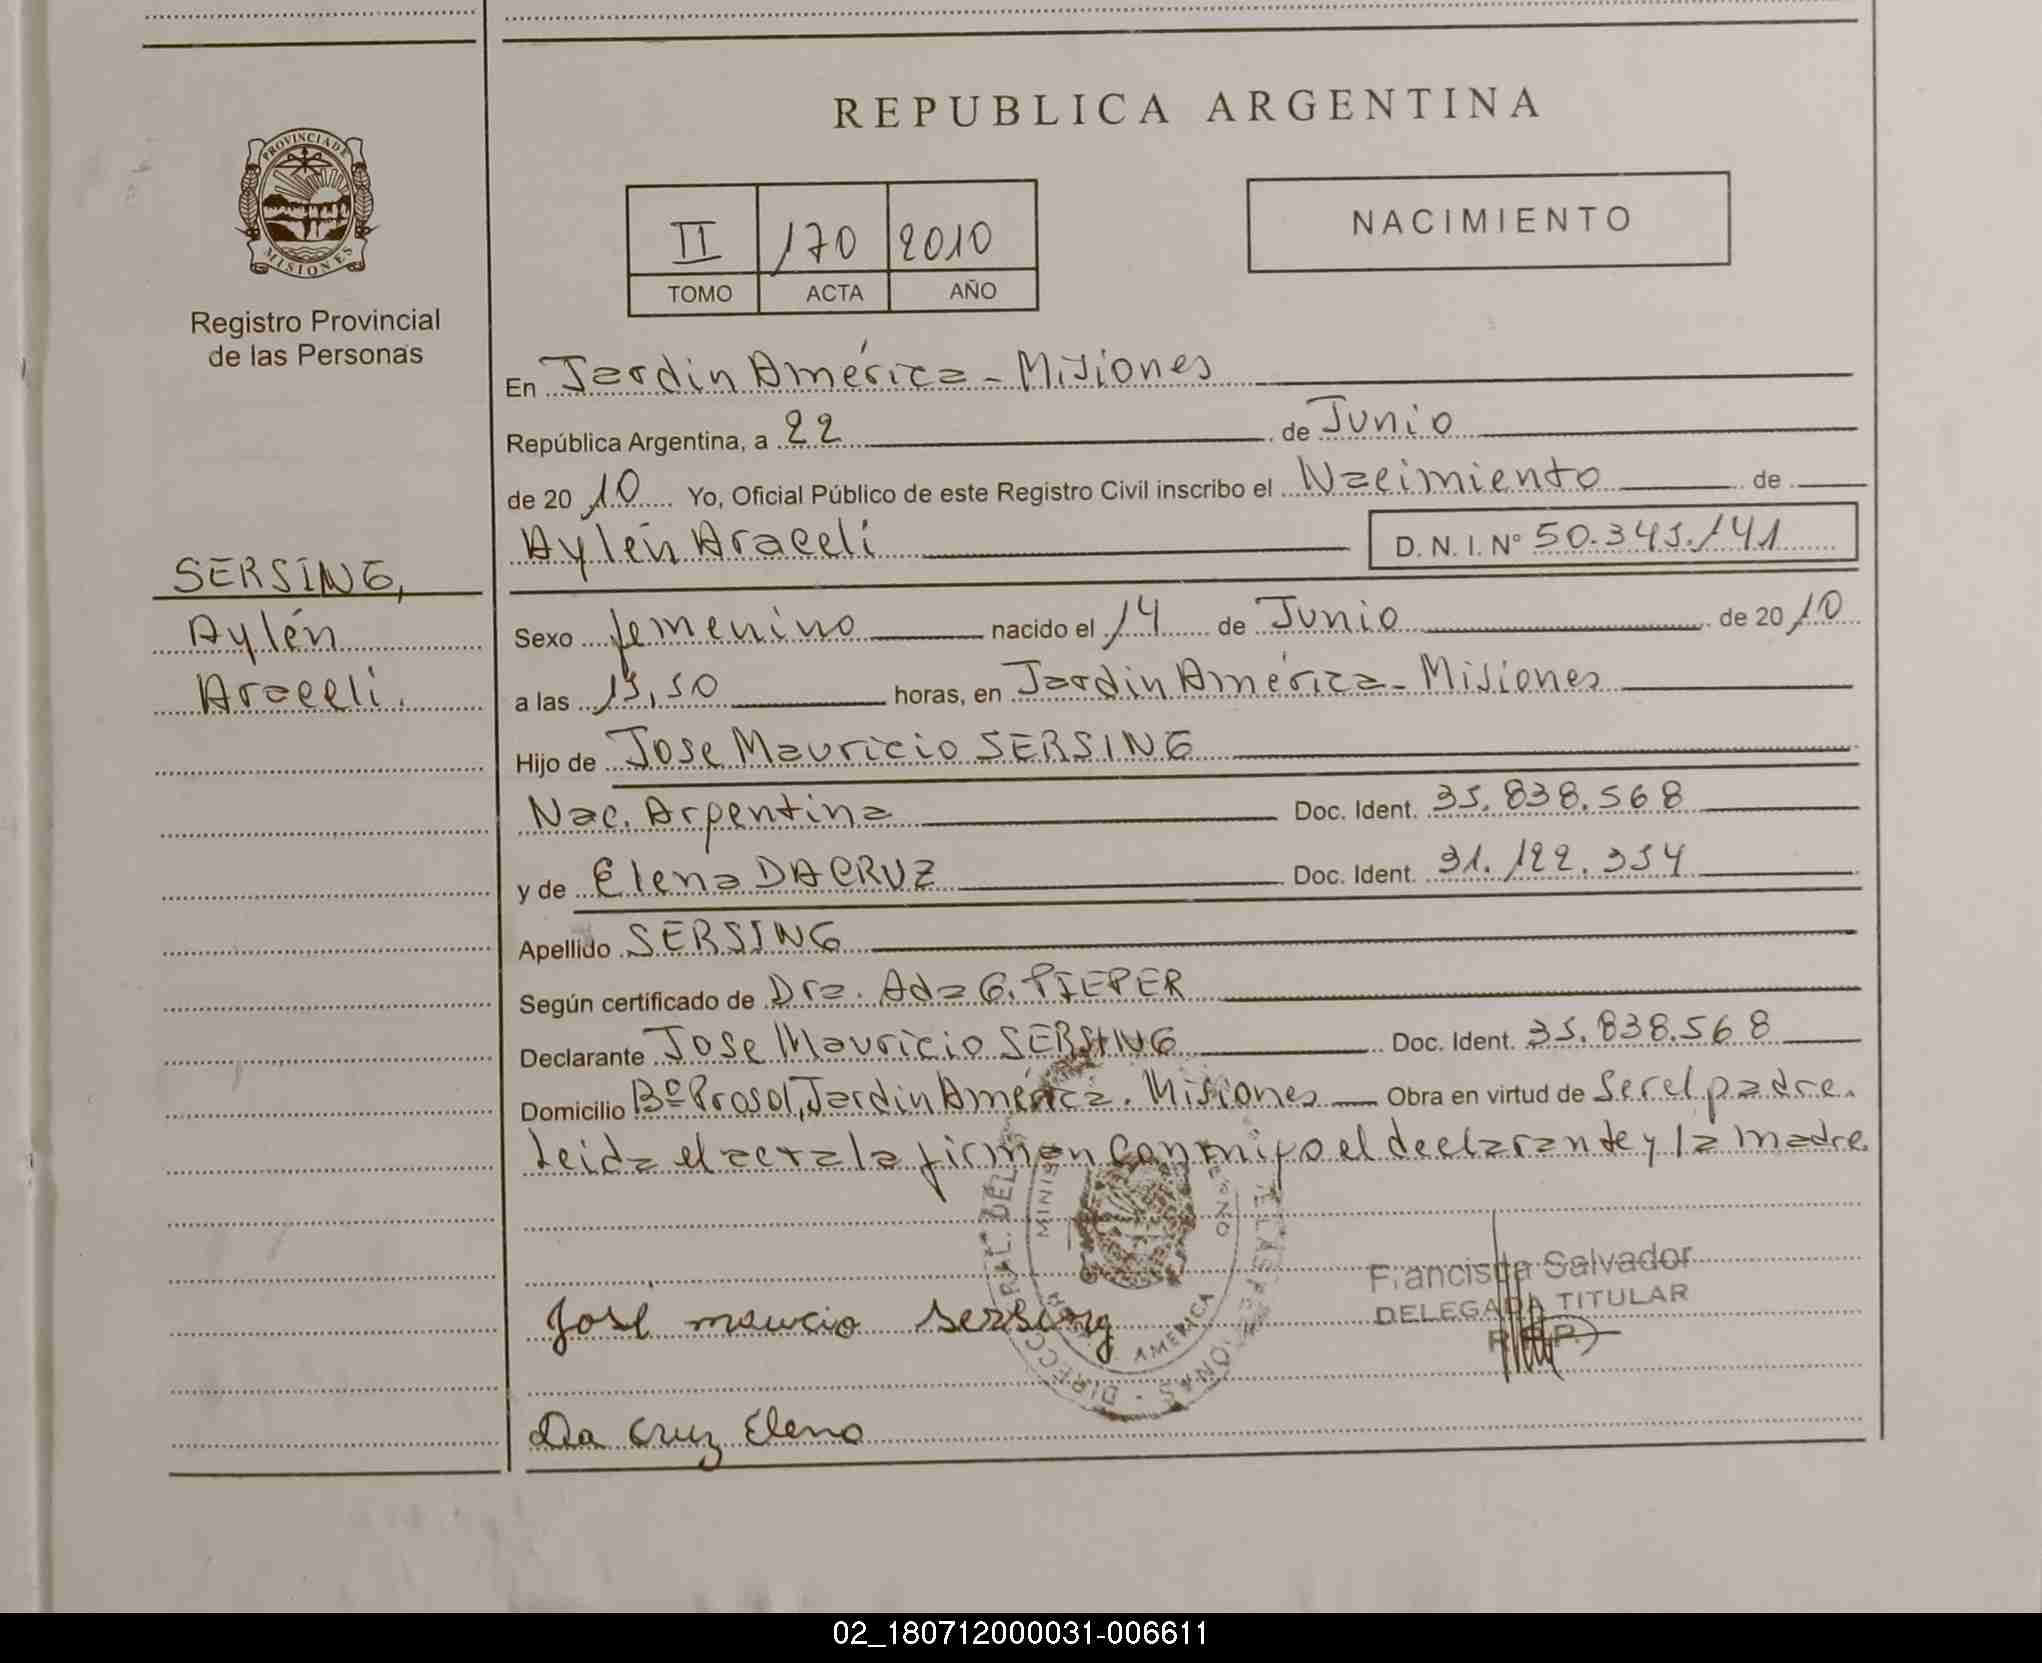 REPUBLICA ARGENTINA
PROVINCIA DE
MISIONES
Registro Provincial
de las Personas
II 170 2010
TOMO ACTA AÑO
NACIMIENTO
En Jardin América - Misiones
República Argentina, a 22 de Junio
de 2010 Yo, Oficial Público de este Registro Civil inscribo el Nacimiento de
Aylén Araceli D.N.I.N° 50.345.141
SERSING,
Aylén
Araceli.
Sexo femenino nacido el 14 de Junio de 2010
a las 15,50 horas, en Jardin América - Misiones
Hijo de Jose Mauricio SERSING
Nac. Argentina Doc. Ident. 35.838.568
y de Elena DA CRUZ Doc. Ident. 31.122.354
Apellido SERSING
Según certificado de Dra. Ada G. PIEPER
Declarante Jose Mauricio SERSING Doc. Ident. 35.838.568
Domicilio Bº Prosol, Jardin América. Misiones Obra en virtud de Ser el padre.
Leida el acta la firman conmigo el declarante y la madre.
José maucio sersing
AMERICA
Francisca Salvador
DELEGADA TITULAR
R.P.P.
Da Cruz Elena
02_180712000031-006611